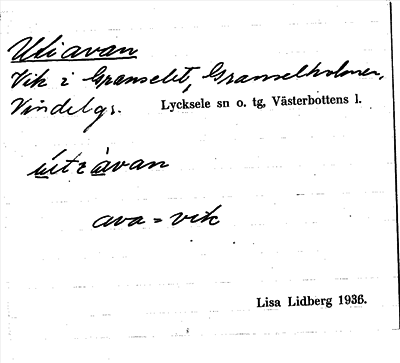 Utiavan
Vik i Granselet, Granselholmen,
Vindelgr. Lycksele sn o. tg, Västerbottens l.
ava = vik
Lisa Lidberg 1936.